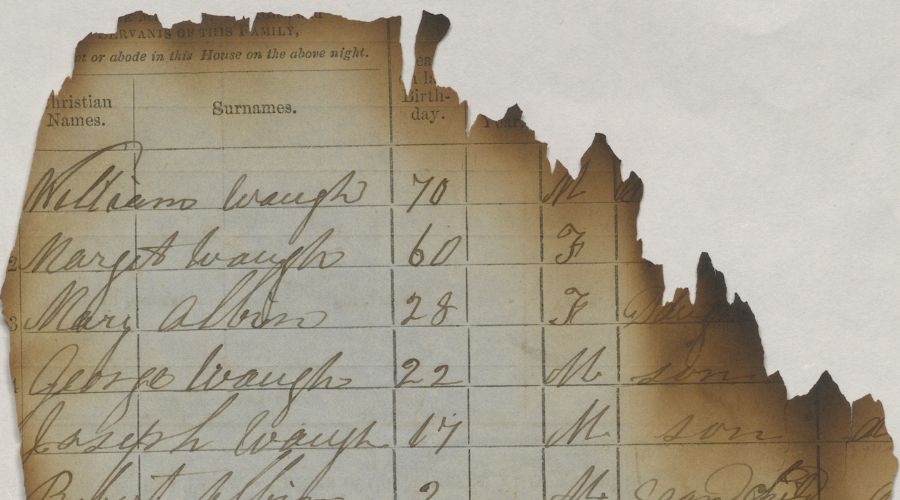 SERVANTS OF THIS FAMILY,
or abode in this House on the above night.
Christian Names. Surnames. Birth-day.
William Waugh 70 M
2 Margt Waugh 60 F
3 Mary Albin 28 F
George Waugh 22 M son
Joseph Waugh 17 M son
Robert Albin 2 M